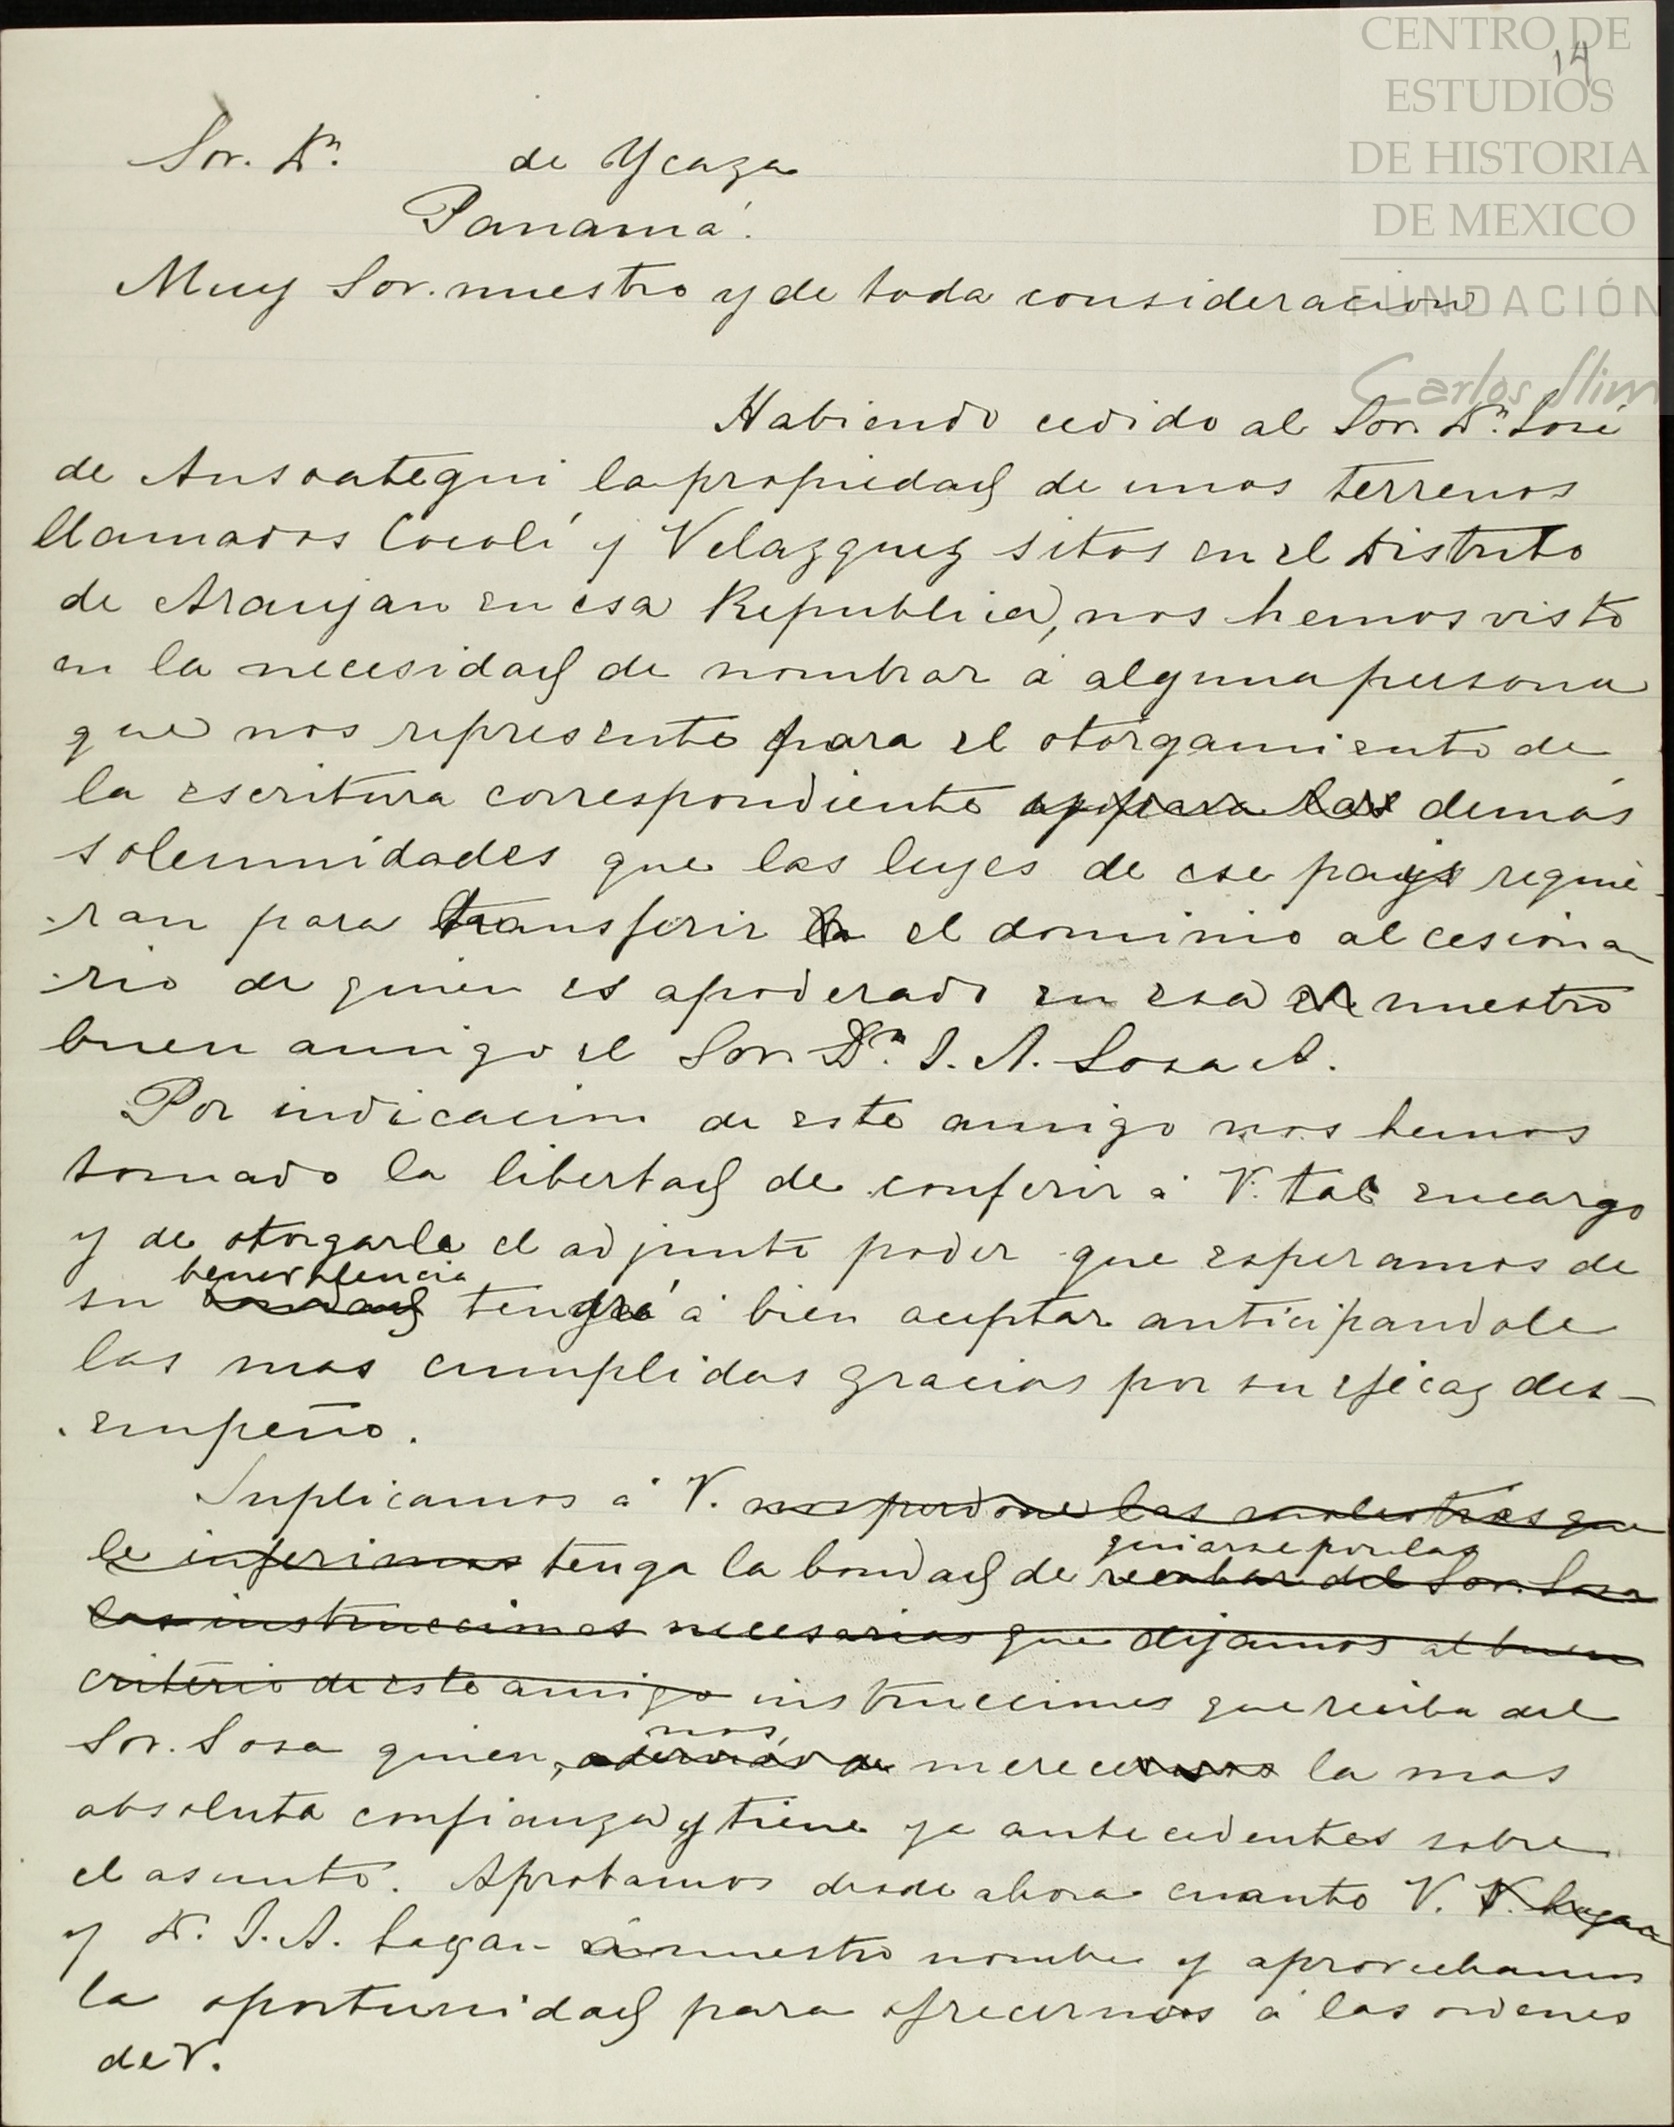 CENTRO DE
ESTUDIOS
DE HISTORIA
DE MEXICO
FUNDACIÓN
Carlos Slim
14
Sor. Dn. de Ycaza
Panamá.
Muy Sor. nuestro y de toda consideracion
Habiendo cedido al Sor. Dn. José
de Ansoategui la propiedad de unos terrenos
llamados Cocolí y Velazquez sitos en el Distrito
de Araujan en esa Republica, nos hemos visto
en la necesidad de nombrar á alguna persona
que nos represente para el otorgamiento de
la escritura correspondiente y para las demás
solemnidades que las leyes de ese pays requie-
-ran para transferir la el dominio al cesiona
-rio de quien es apoderado en esa nuestro
buen amigo el Sor. Dn. J. A. Sosa A.
Por indicacion de este amigo nos hemos
tomado la libertad de conferir á V. tal encargo
y de otorgarle el adjunto poder que esperamos de
benevolencia
su bondad tendrá á bien aceptar anticipandole
las mas cumplidas gracias por su eficaz des-
-empeño.
Suplicamos á V. nos perdone las molestias que
le inferimos tenga la bondad de recabar del Sor. Sosa
guiarse por las
las instrucciones necesarias que dejamos al buen
criterio de este amigo instrucciones que reciba del
Sor. Sosa quien, además de merecernos la mas
nos
absoluta confianza y tiene ya antecedentes sobre
el asunto. Aprobamos desde ahora cuanto V. V. hagan
y D. J. A. hagan á nuestro nombre y aprovechamos
la oportunidad para ofrecernos á las ordenes
de V.